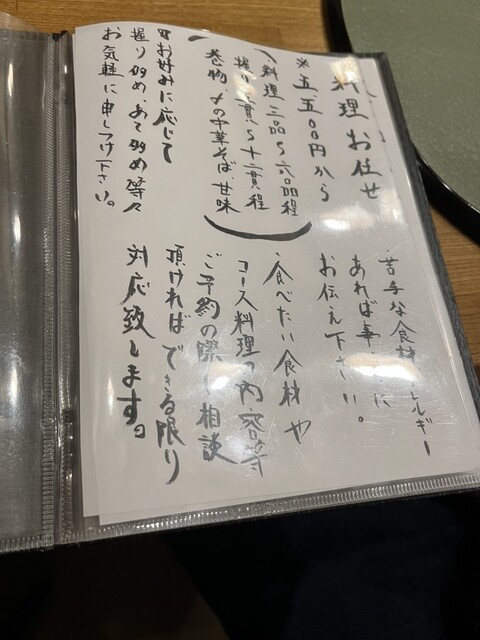 料理お任せ
※五五〇〇円から
料理三品〜六品程
握り 貫〜十二貫程
巻物 〆の中華そば、甘味
お好みに応じて
握り多め、あて多め等々
お気軽に申しつけ下さい。
苦手な食材 レルギー
あれば事 に
お伝え下さい。
・食べたい食材や
コース料理の内容等
ご予約の際 相談
頂ければできる限り
対応致します。